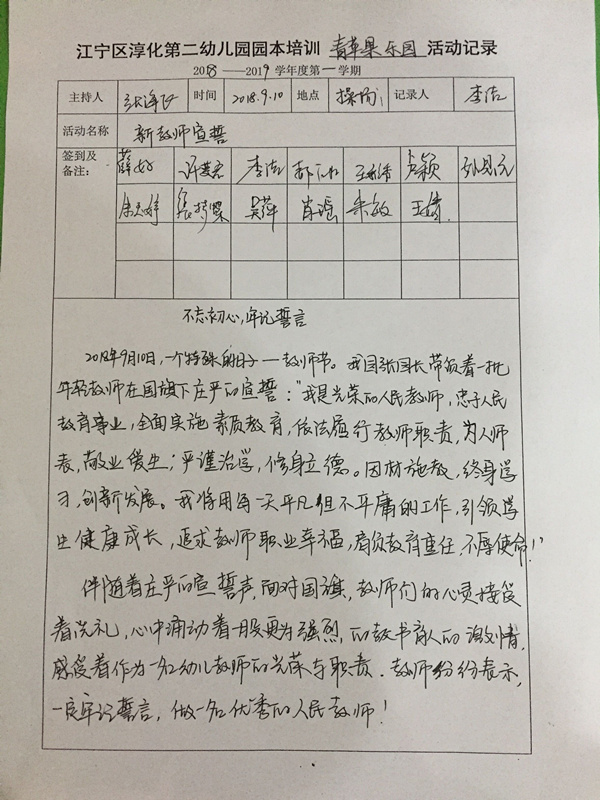 江宁区淳化第二幼儿园园本培训 青苹果乐园 活动记录
2018——2019学年度第一学期
主持人 时间 2018.9.10 地点 操场 记录人 李洁
活动名称 新教师宣誓
签到及
备注: 薛 许 李洁 颖 孙
余 张梦 吴萍 肖瑶 朱敏 王倩
不忘初心,牢记誓言
2018年9月10日,一个特殊的日子——教师节。我园张园长带领着一批
年轻教师在国旗下庄严的宣誓:"我是光荣的人民教师,忠于人民
教育事业,全面实施素质教育,依法履行教师职责,为人师
表,敬业爱生;严谨治学,修身立德。因材施教,终身学
习,创新发展。我将用每一天平凡但不平庸的工作,引领学
生健康成长,追求教师职业幸福,肩负教育重任,不辱使命!"
伴随着庄严的宣誓声,面对国旗,教师们的心灵接受
着洗礼,心中涌动着一股更为强烈,的教书育人的激情,
感受着作为一名幼儿教师的光荣与职责.教师纷纷表示,
一定牢记誓言,做一名优秀的人民教师!